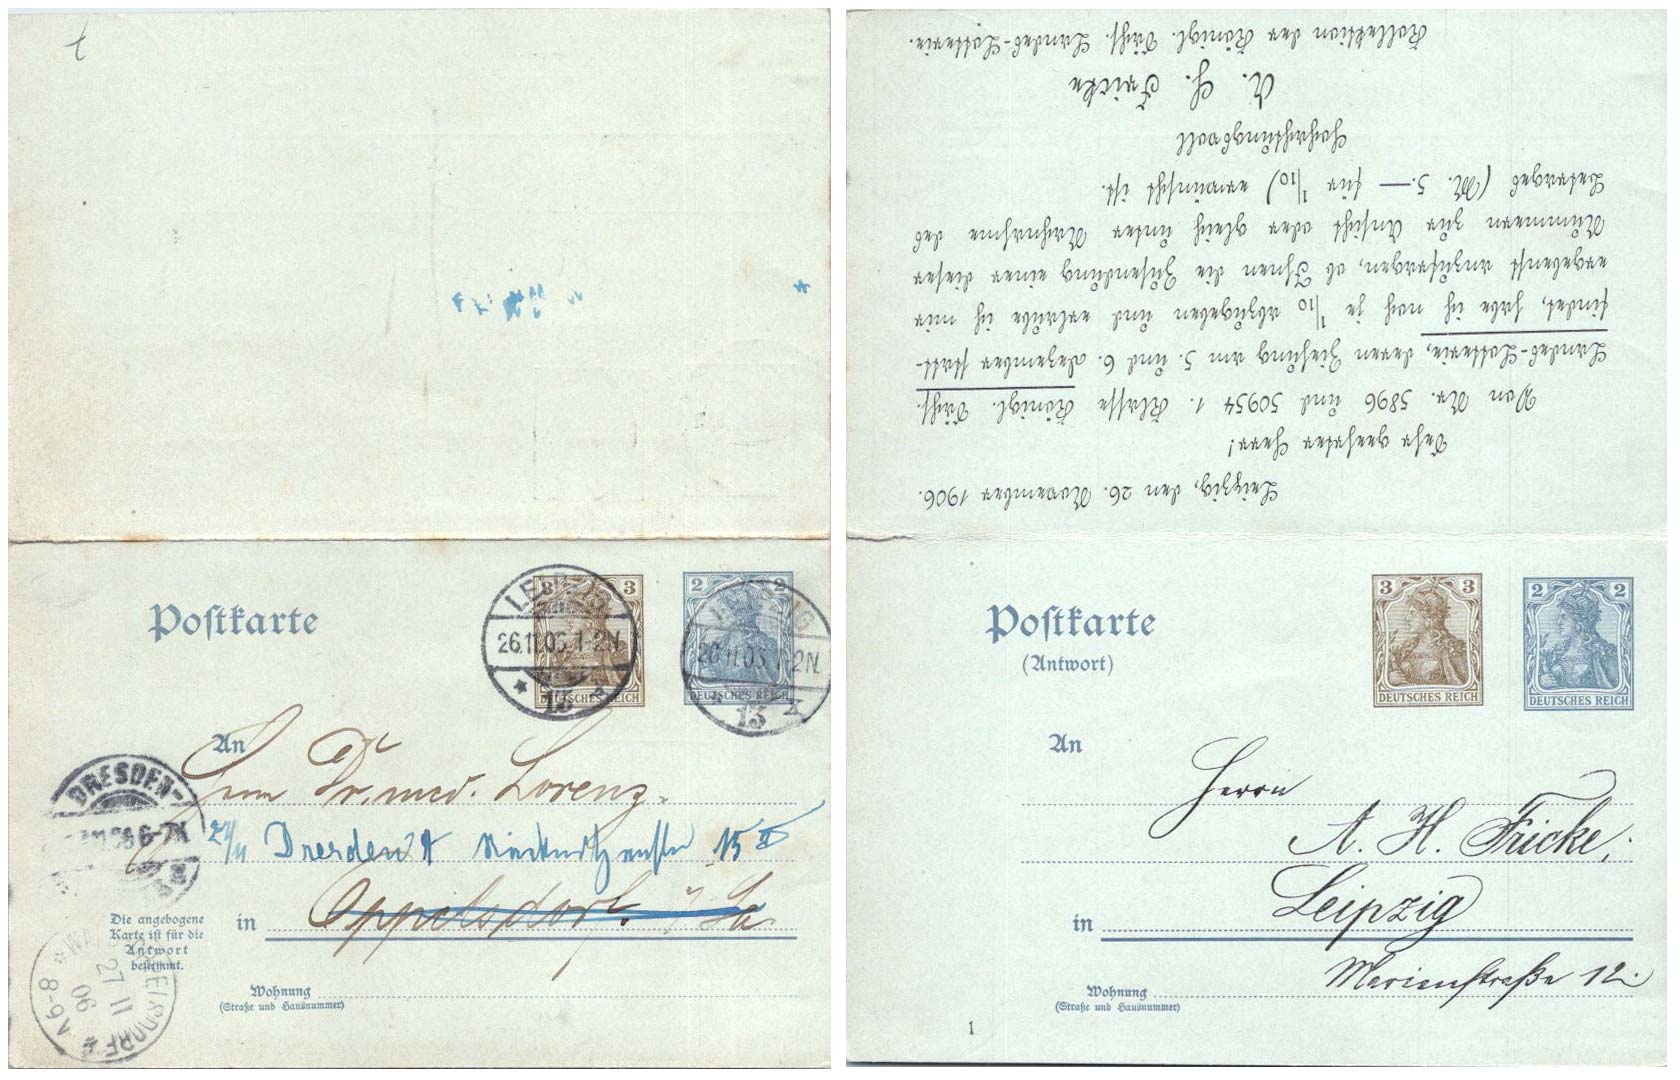 Postkarte
3 3
2 2
DEUTSCHES REICH
DEUTSCHES REICH
LEIPZIG
26.11.06. 1-2N.
13
LEIPZIG
26.11.06. 1-2N.
13
An
Herrn Dr. med. Lorenz.
Dresden A 15 II
in Oppelsdorf. i/Sa.
DRESDEN-
6-7N
Die angebogene
Karte ist für die
Antwort
bestimmt.
27 11
06
8-9V
Wohnung
(Straße und Hausnummer)
Leipzig, den 26. November 1906.
Sehr geehrter Herr!
Von Nr. 5896 und 50954 1. Klasse Königl. Sächs.
Landes-Lotterie, deren Ziehung am 5. und 6. Dezember statt-
findet, habe ich noch je 1/10 abzugeben und erlaube ich mir
ergebenst anzufragen, ob Ihnen die Zusendung einer dieser
Nummern zur Ansicht oder gleich unter Nachnahme des
Betrages (M. 5.— für 1/10) erwünscht ist.
Hochachtungsvoll
A. H. Fricke
Kollektion der Königl. Sächs. Landes-Lotterie.
Postkarte
(Antwort)
3 3
2 2
DEUTSCHES REICH
DEUTSCHES REICH
An
Herrn
A. H. Fricke,
in Leipzig
Marienstraße 12.
Wohnung
(Straße und Hausnummer)
1